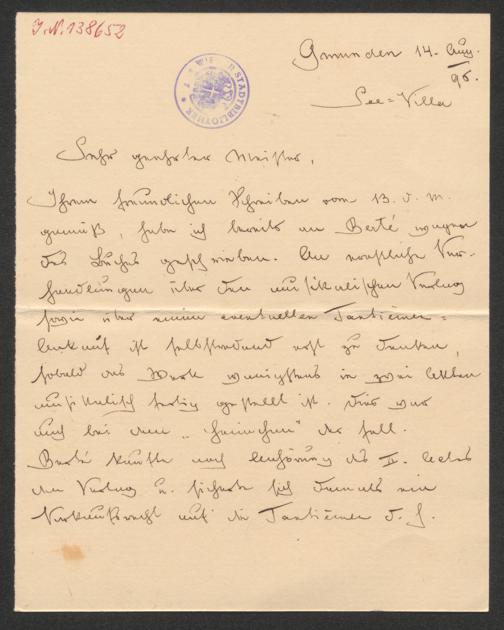 J.N. 138652
WIENER STADTBIBLIOTHEK
Gmunden 14. Aug.
96.
See=Villa
Sehr geehrter Meister,
Ihrem freundlichen Schreiben vom 13. d. M.
gemäß, habe ich bereits an Berté wegen
des Buches geschrieben. An ernstliche Ver-
handlungen über den musikalischen Verlag
sowie über einen eventuellen Tantièmen=
Ankauf ist selbstredend erst zu denken,
sobald das Werk wenigstens in zwei Akten
musikalisch fertig gestellt ist. Dies war
auch bei dem „Heimchen" der Fall.
Berté kaufte nach Anhörung des II. Actes
den Verlag u. sicherte sich damals ein
Vorkaufsrecht auf die Tantièmen d. h.